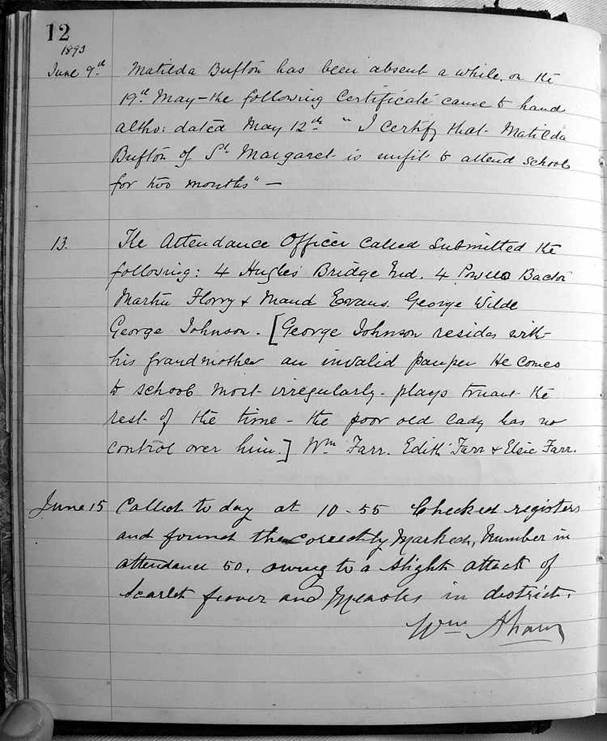 12
1893
June 9th Matilda Bufton has been absent a while, on the
19th May – the following Certificate came to hand
altho: dated May 12th " I certify that Matilda
Bufton of St. Margaret is unfit to attend school
for two months" –
13. The Attendance Officer called submitted the
following: 4 Hughes Bridge End. 4 Powells Bacton
Martha Florry & Maud Evans. George Wilde
George Johnson. [George Johnson resides with
his grandmother an invalid pauper He comes
to school most irregularly – plays truant the
rest of the time – the poor old lady has no
control over him.] Wm Farr. Edith Farr & Elsie Farr.
June 15 Called to day at 10-55 Checked registers
and found the correctly Marked, Number in
attendance 50, owing to a slight attack of
Scarlet feaver and Measles in district.
Wm